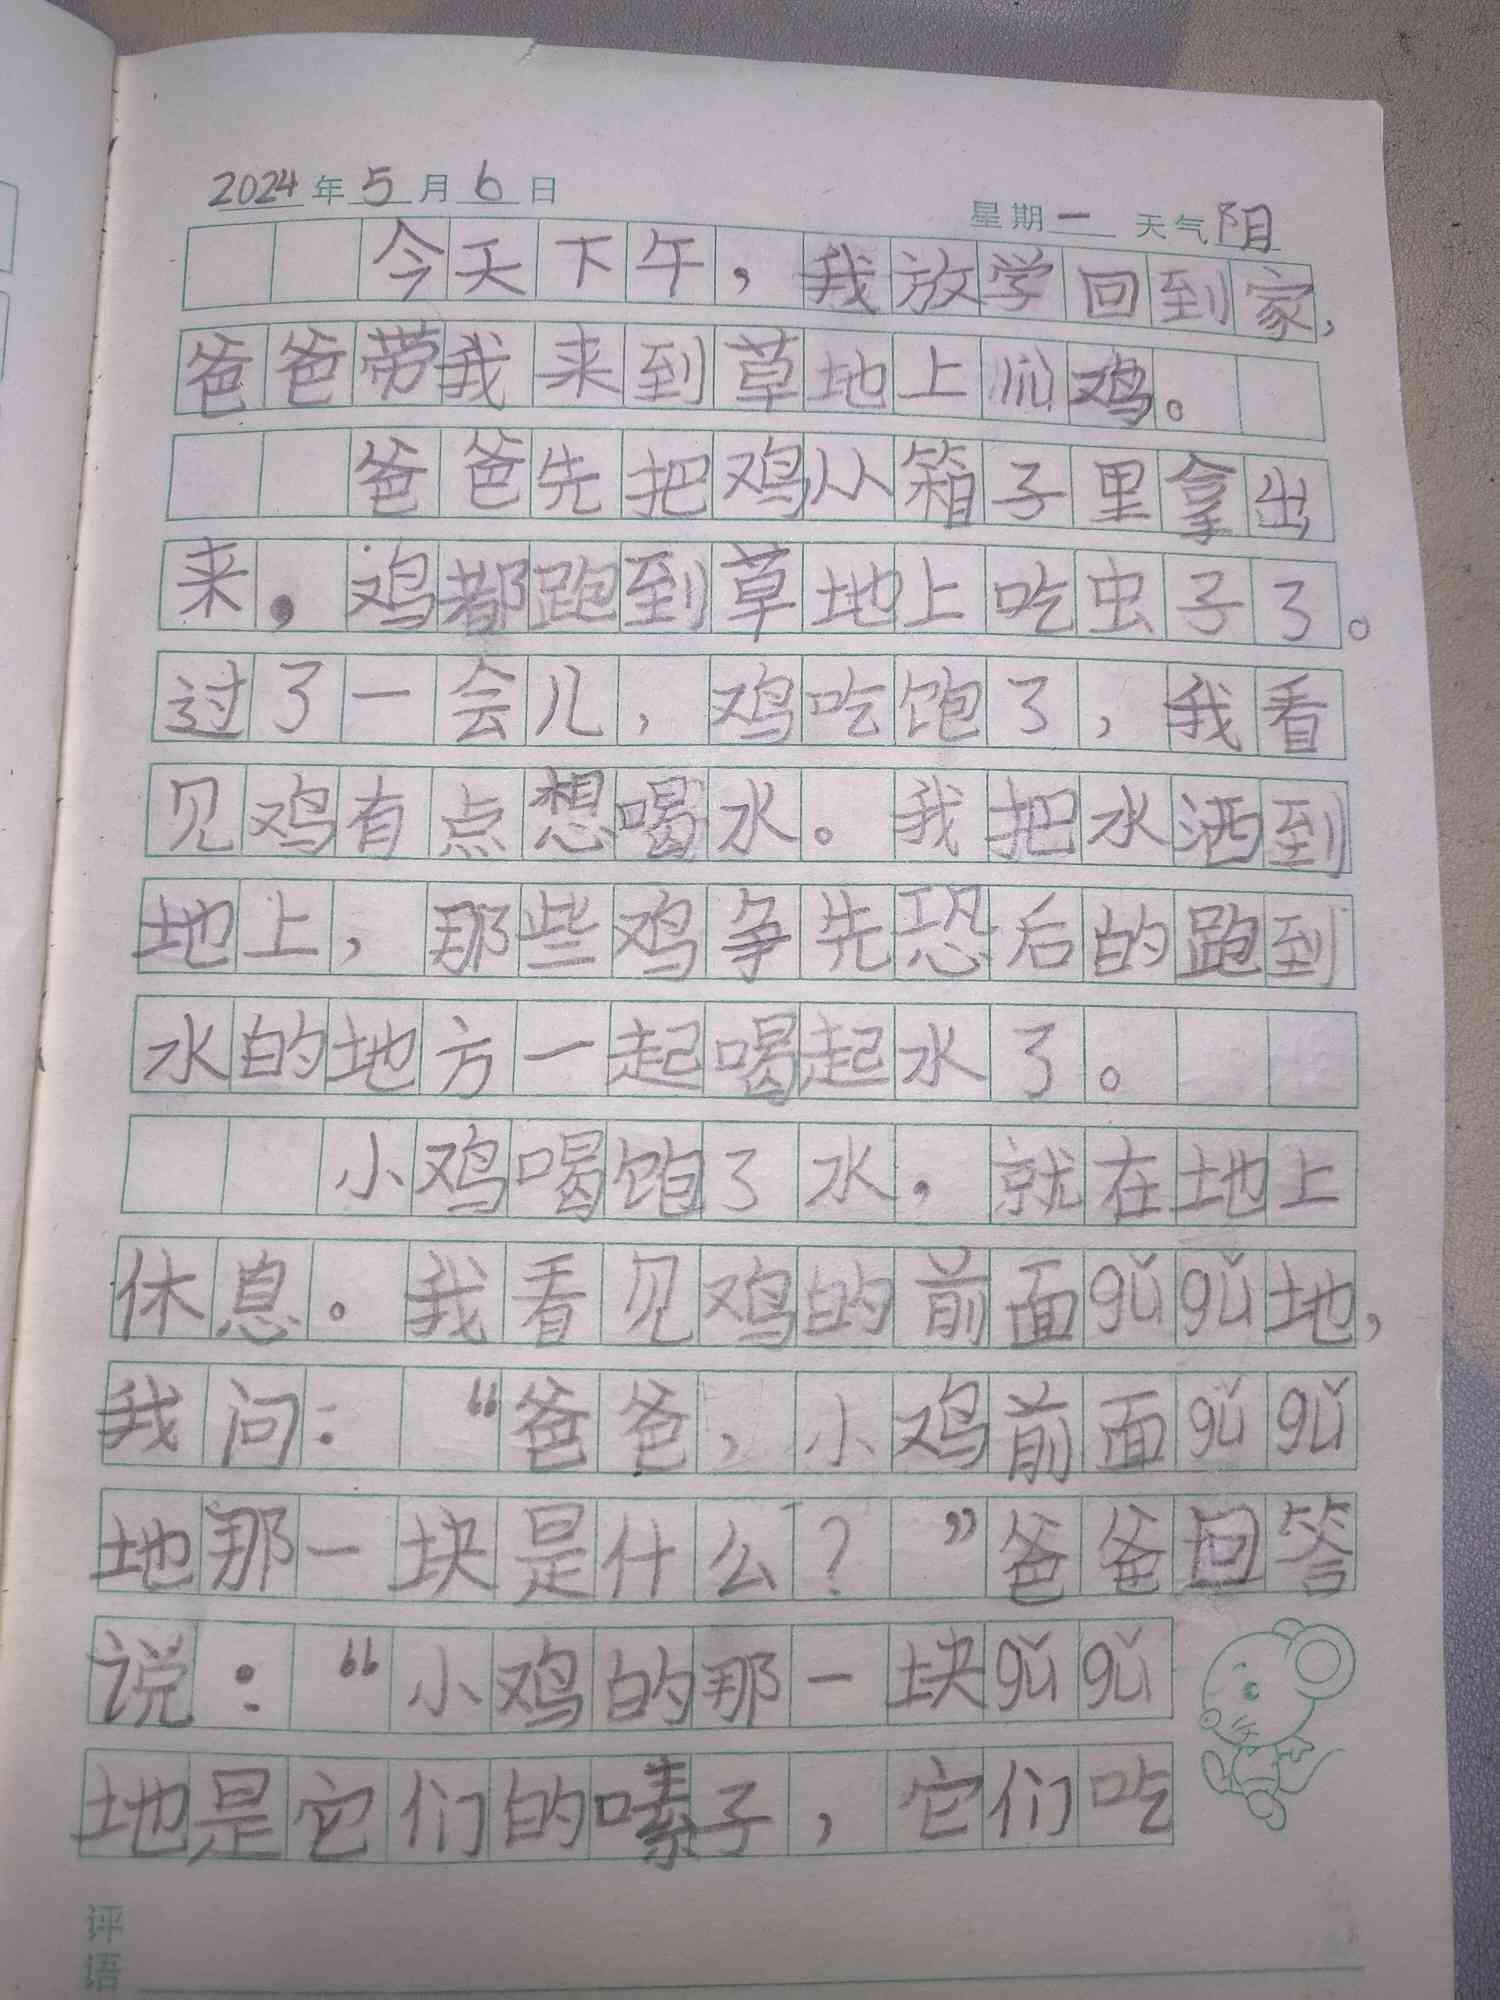 2024年5月6日 星期一 天气阳
今天下午，我放学回到家，
爸爸带我来到草地上 鸡。
爸爸先把鸡从箱子里拿出
来，鸡都跑到草地上吃虫子了。
过了一会儿，鸡吃饱了，我看
见鸡有点想喝水。我把水洒到
地上，那些鸡争先恐后的跑到
水的地方一起喝起水了。
小鸡喝饱了水，就在地上
休息。我看见鸡的前面gǔgǔ地，
我问：“爸爸，小鸡前面gǔgǔ
地那一块是什么？”爸爸回答
说：“小鸡的那一块gǔgǔ
地是它们的嗉子，它们吃
评语